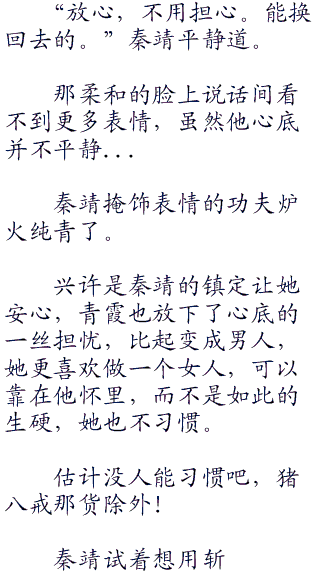 “放心，不用担心。能换
回去的。”秦靖平静道。
那柔和的脸上说话间看
不到更多表情，虽然他心底
并不平静...
秦靖掩饰表情的功夫炉
火纯青了。
兴许是秦靖的镇定让她
安心，青霞也放下了心底的
一丝担忧，比起变成男人，
她更喜欢做一个女人，可以
靠在他怀里，而不是如此的
生硬，她也不习惯。
估计没人能习惯吧，猪
八戒那货除外！
秦靖试着想用斩